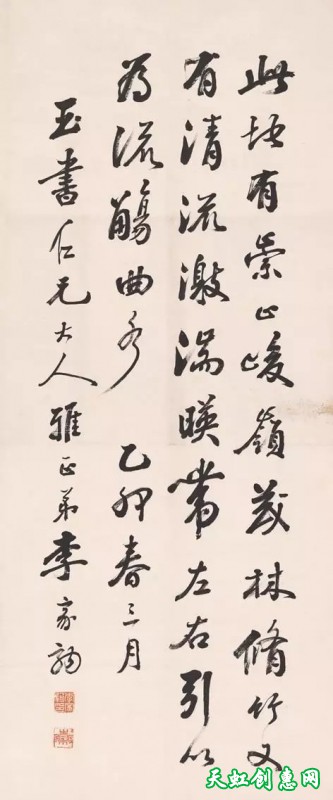 此地有崇山峻嶺茂林脩竹又
有清流激湍暎帶左右引以
為流觴曲水 乙卯春三月
玉書仁兄大人雅正弟李家駒
天虹创惠网